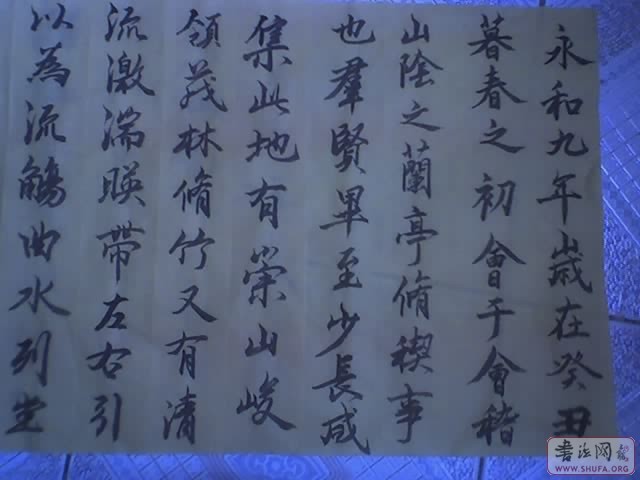 永和九年歲在癸丑
暮春之初會于會稽
山陰之蘭亭脩稧事
也羣賢畢至少長咸
集此地有崇山峻
領茂林脩竹又有清
流激湍暎帶左右引
以為流觴曲水列坐
書法网
WWW.SHUFA.ORG